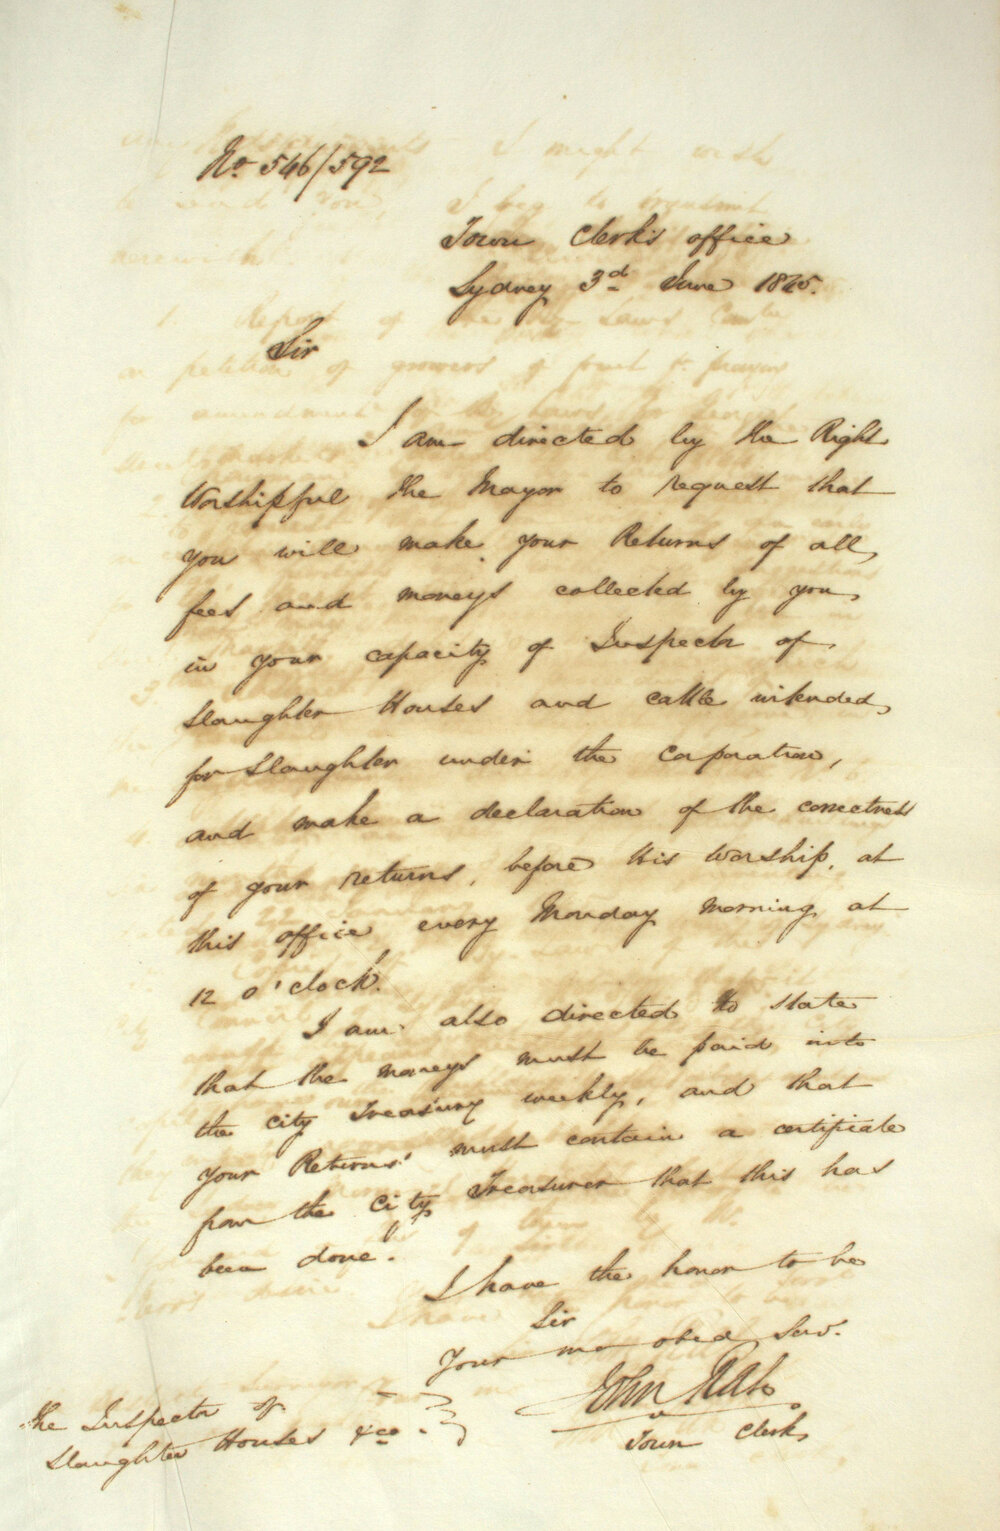 No. 546/592
Town Clerk's office
Sydney 3d June 1845.
Sir
I am directed by the Right
Worshipful the Mayor to request that
you will make your Returns of all
fees and moneys collected by you
in your capacity of Inspector of
Slaughter Houses and cattle intended
for Slaughter under the Corporation,
and make a declaration of the correctness
of your returns, before His Worship, at
this office every Monday morning at
12 o'clock.
I am also directed to state
that the moneys must be paid into
the City Treasury weekly, and that
your Returns must contain a certificate
from the City Treasurer that this has
been done.
I have the honor to be
Sir
Your mo obed Serv.
John
Town Clerk
The Inspector of
Slaughter Houses &ce.